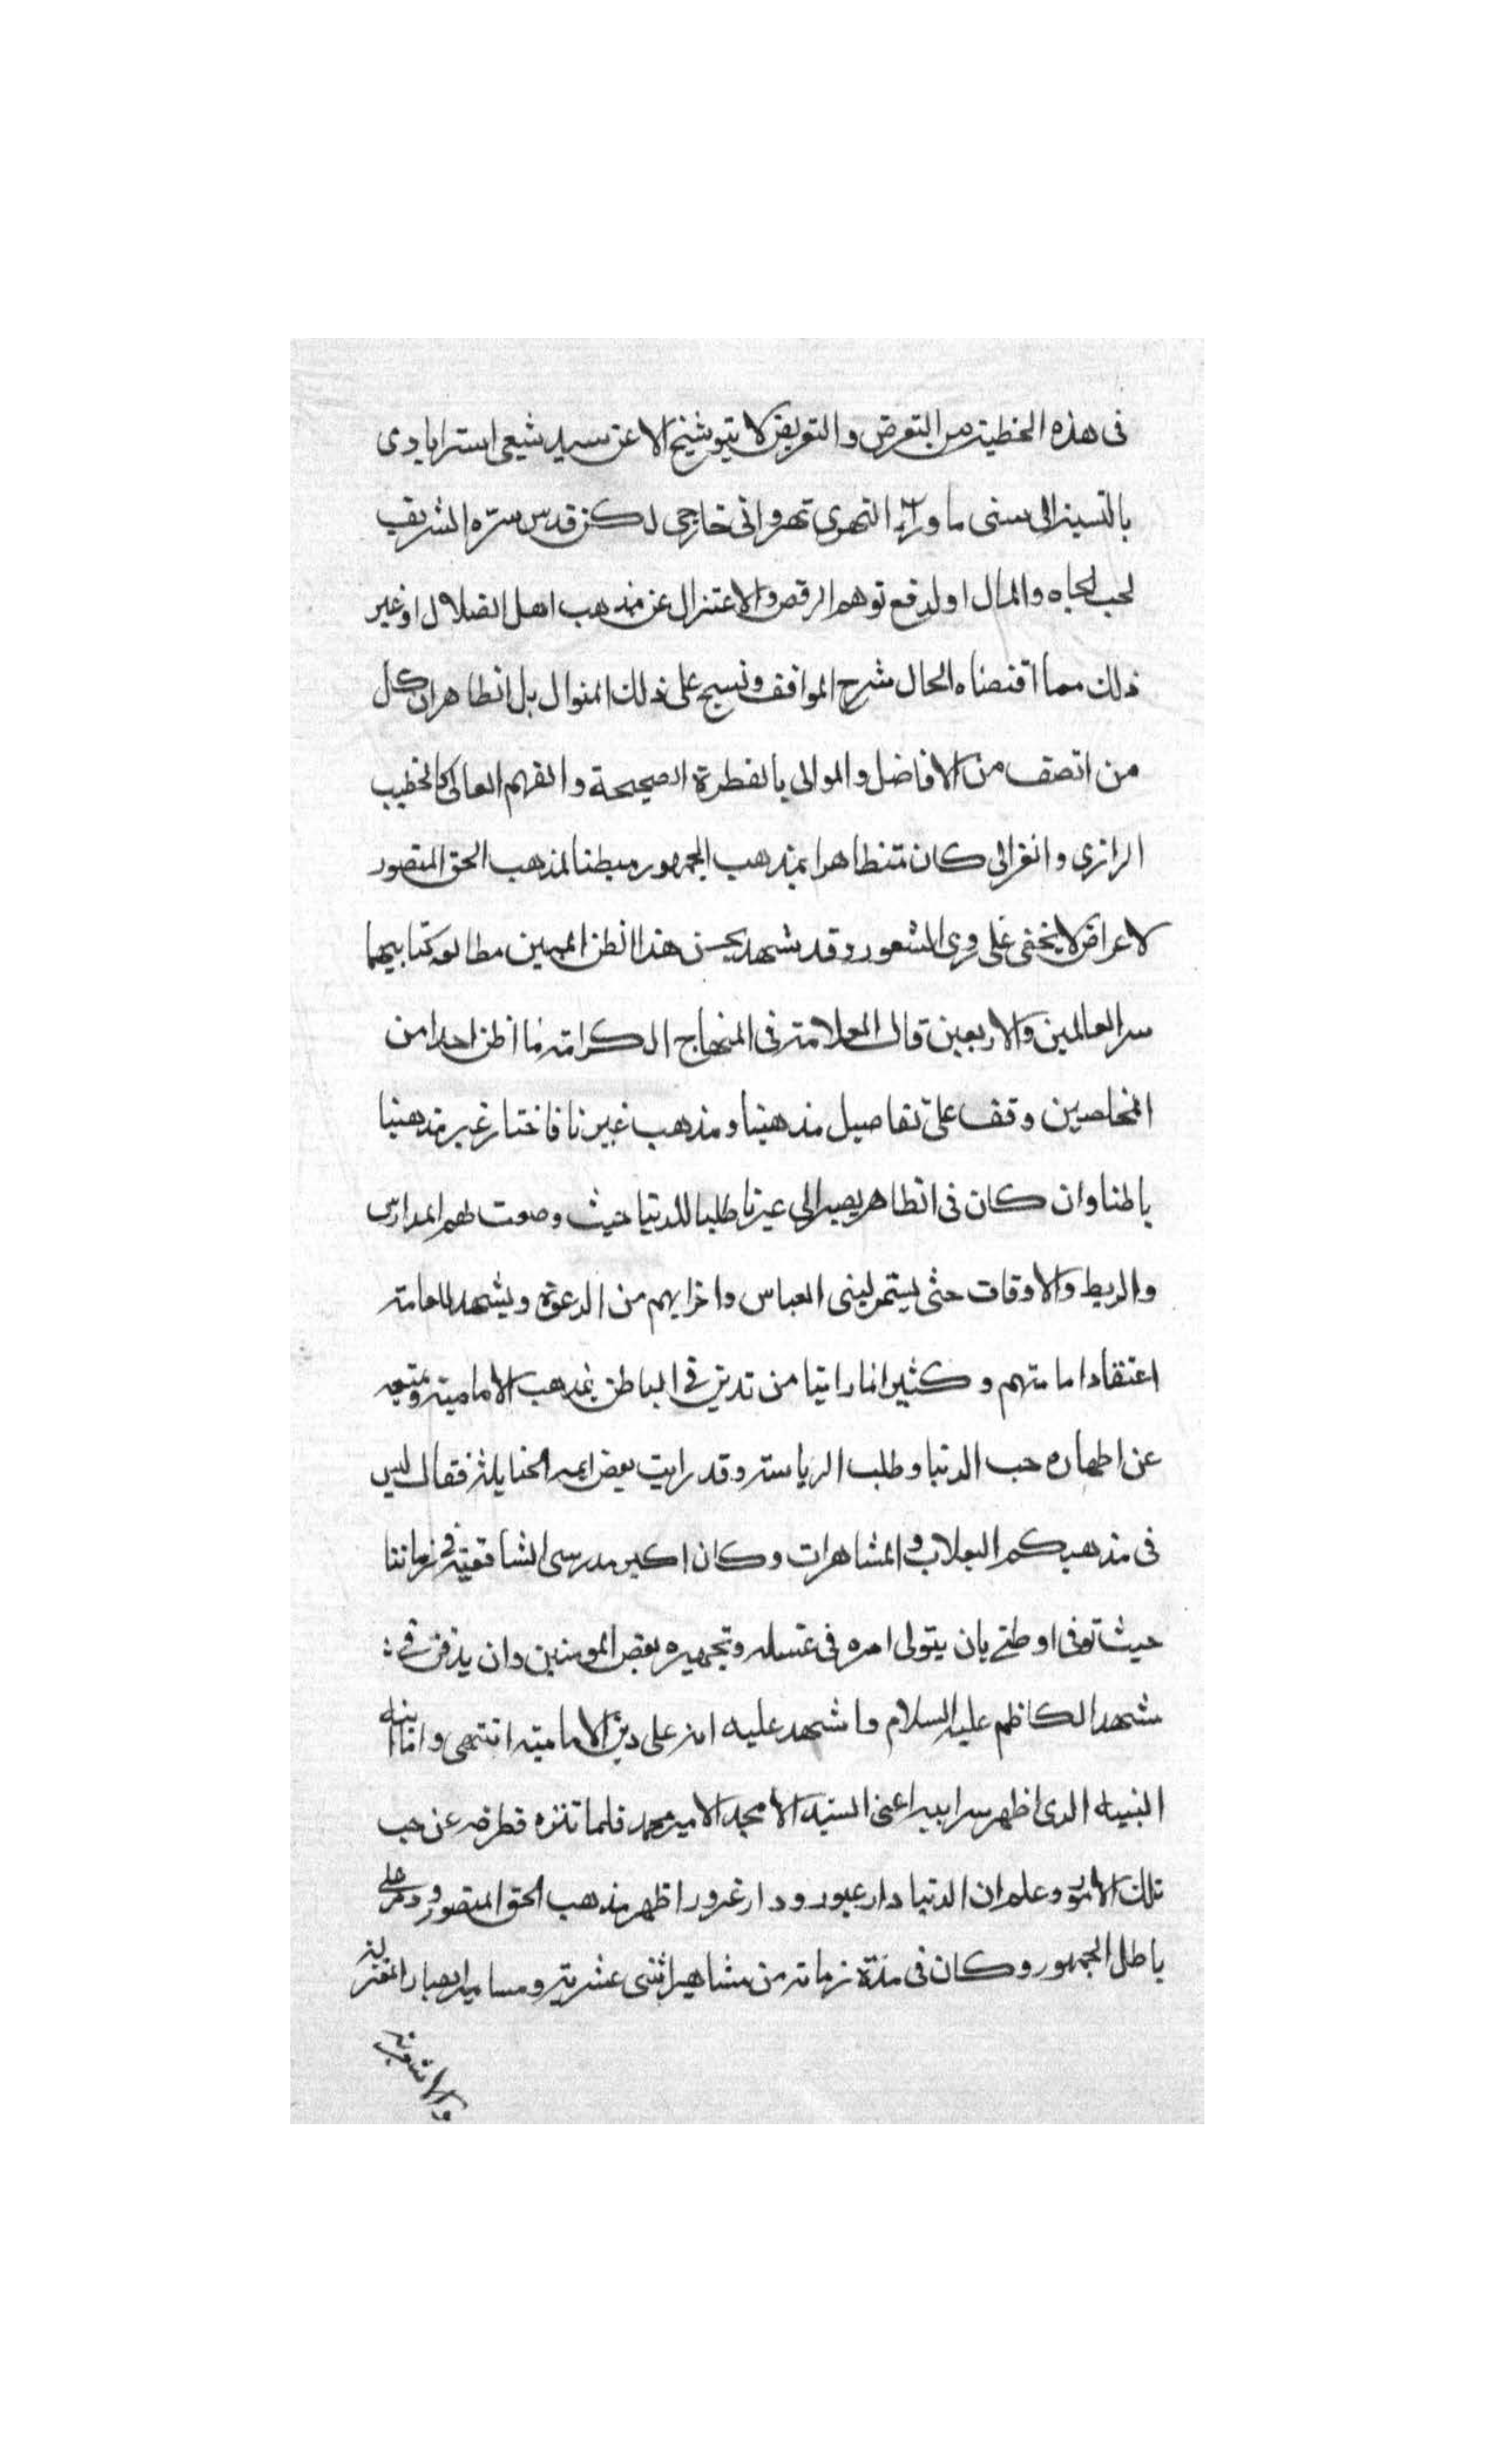 فى هذه الخطية من التعرض والتعريض لا يتوشيخ الا عن سيد شيعى استرابادى
بالنسبة الى سنى ما وراء النهرى نهروانى خارجى لكن قدس سره الشريف
لحب الجاه والمال او لدفع توهم الرفض والاعتزال عن مذهب اهل الضلال او غير
ذلك مما اقتضاه الحال شرح المواقف ونسج على ذلك المنوال بل الظاهر ان كل
من اتصف من الافاضل والموالى بالفطرة الصحيحة والفهم العالى كالخطيب
الرازى والغزالى كان متظاهرا بمذهب الجمهور مبطنا لمذهب الحق المنصور
لاعراض لا يخفى على ذوى الشعور وقد شهد بحسن هذا الظن المبين مطالعه كتابيهما
سر العالمين والاربعين قال العلامة فى المنهاج الكرامة ما اظن احدا من
المخلصين وقف على تفاصيل مذهبنا ومذهب غيرنا فاختار غير مذهبنا
باطنا وان كان فى الظاهر يصير الى غيرنا طلبا للدنيا حيث وضعت لهم المدارس
والربط والاوقات حتى يستمر لبنى العباس واخرابهم من الدعوة ويشهد للعامة
اعتقاد امامتهم وكثيرا ما راينا من تدين فى الباطن بمذهب الامامية ومنعه
عن اظهاره حب الدنيا وطلب الرياسة وقد رايت بعض ايمه الحنابلة فقال ليس
فى مذهبكم البعلاب والمشاهرات وكان اكبر مدرسى الشافعية فى زماننا
حيث توفى اوصى بان يتولى امره فى غسله وتجهيزه بعض المومنين وان يدفن فى
مشهد الكاظم عليه السلام واشهد عليه انه على دين الامامية انتهى واما ابنه
النبيه الذى اظهر سر ابيه اعنى السيد الامجد الامير محمد فلما تنزه فطرته عن حب
تلك الامور وعلم ان الدنيا دار عبور ودار غرور اظهر مذهب الحق المنصور ودمر على
باطل الجمهور وكان فى مدة زمانه من مشاهير اثنى عشرية ومسامير ابصار المعتزلة
والاشعرية